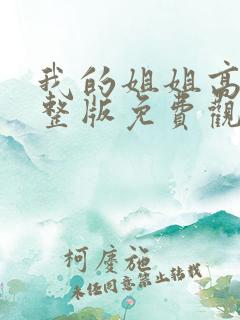 我的姐姐高
整版免費觀
柯慶施
未经同意禁止转载